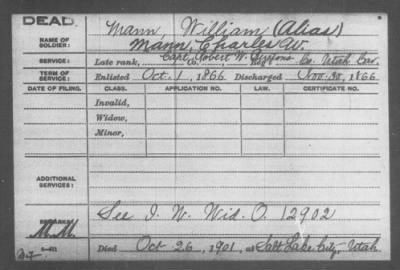 DEAD.
NAME OF SOLDIER: Mann, William (Alias)
Mann, Charles W.
SERVICE: Late rank, Capt. Robert W. Co. Reg't Co. Utah Cav.
TERM OF SERVICE: Enlisted Oct. 1, 1866 Discharged Nov. 30, 1866
DATE OF FILING. CLASS. APPLICATION NO. LAW. CERTIFICATE NO.
Invalid,
Widow,
Minor,
ADDITIONAL SERVICES:
See I. W. Wid. O. 12902
REMARKS:
M.M.
Died Oct 26, 1901, at Salt Lake City, Utah